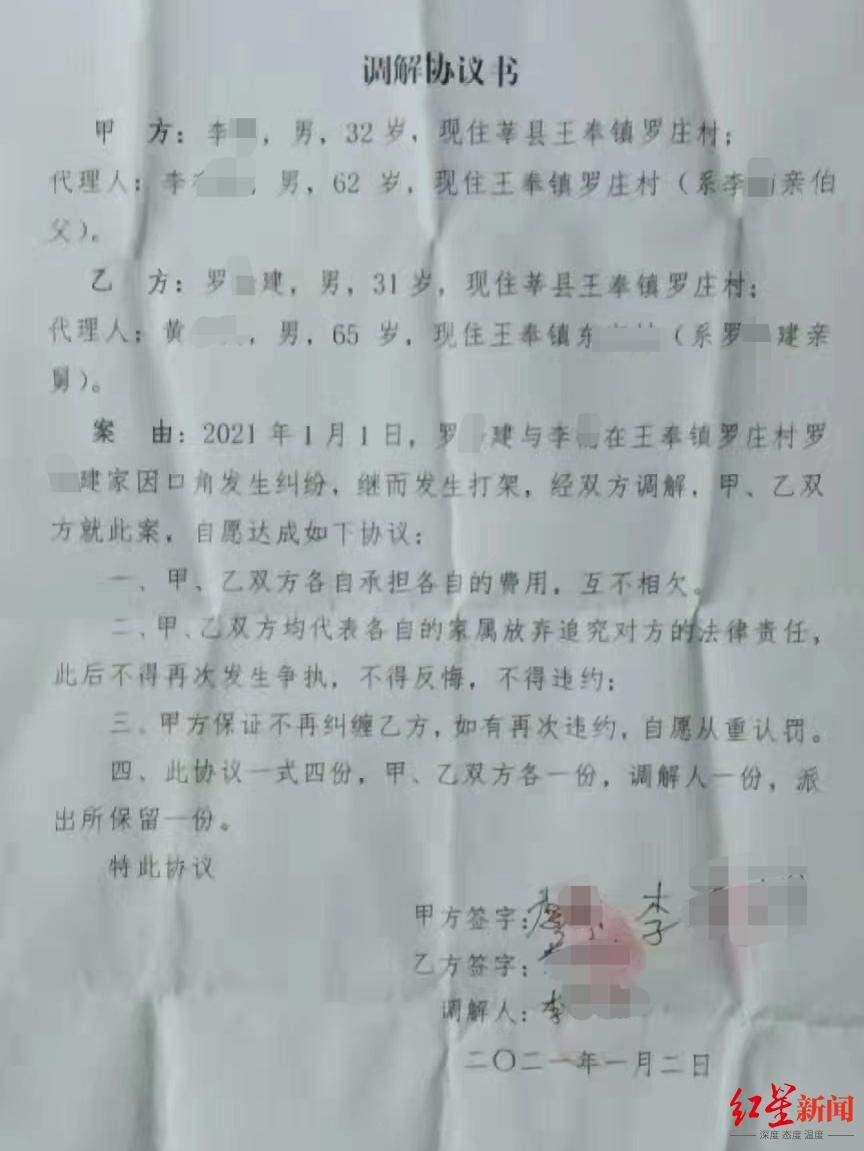 调解协议书
甲 方：李 ，男，32岁，现住莘县王奉镇罗庄村；
代理人：李 ，男，62 岁，现住王奉镇罗庄村（系李 亲伯
父）。
乙 方：罗 建，男，31岁，现住莘县王奉镇罗庄村；
代理人：黄 ，男，65 岁，现住王奉镇东 （系罗 建亲
舅）。
案 由：2021年1月1日，罗 建与李 在王奉镇罗庄村罗
建家因口角发生纠纷，继而发生打架，经双方调解，甲、乙双
方就此案，自愿达成如下协议：
一、甲、乙双方各自承担各自的费用，互不相欠。
二、甲、乙双方均代表各自的家属放弃追究对方的法律责任，
此后不得再次发生争执，不得反悔，不得违约；
三、甲方保证不再纠缠乙方，如有再次违约，自愿从重认罚。
四、此协议一式四份，甲、乙双方各一份，调解人一份，派
出所保留一份。
特此协议
甲方签字： 李
乙方签字：
调解人：李
二〇二一年一月二日
红星新闻
深度 态度 温度